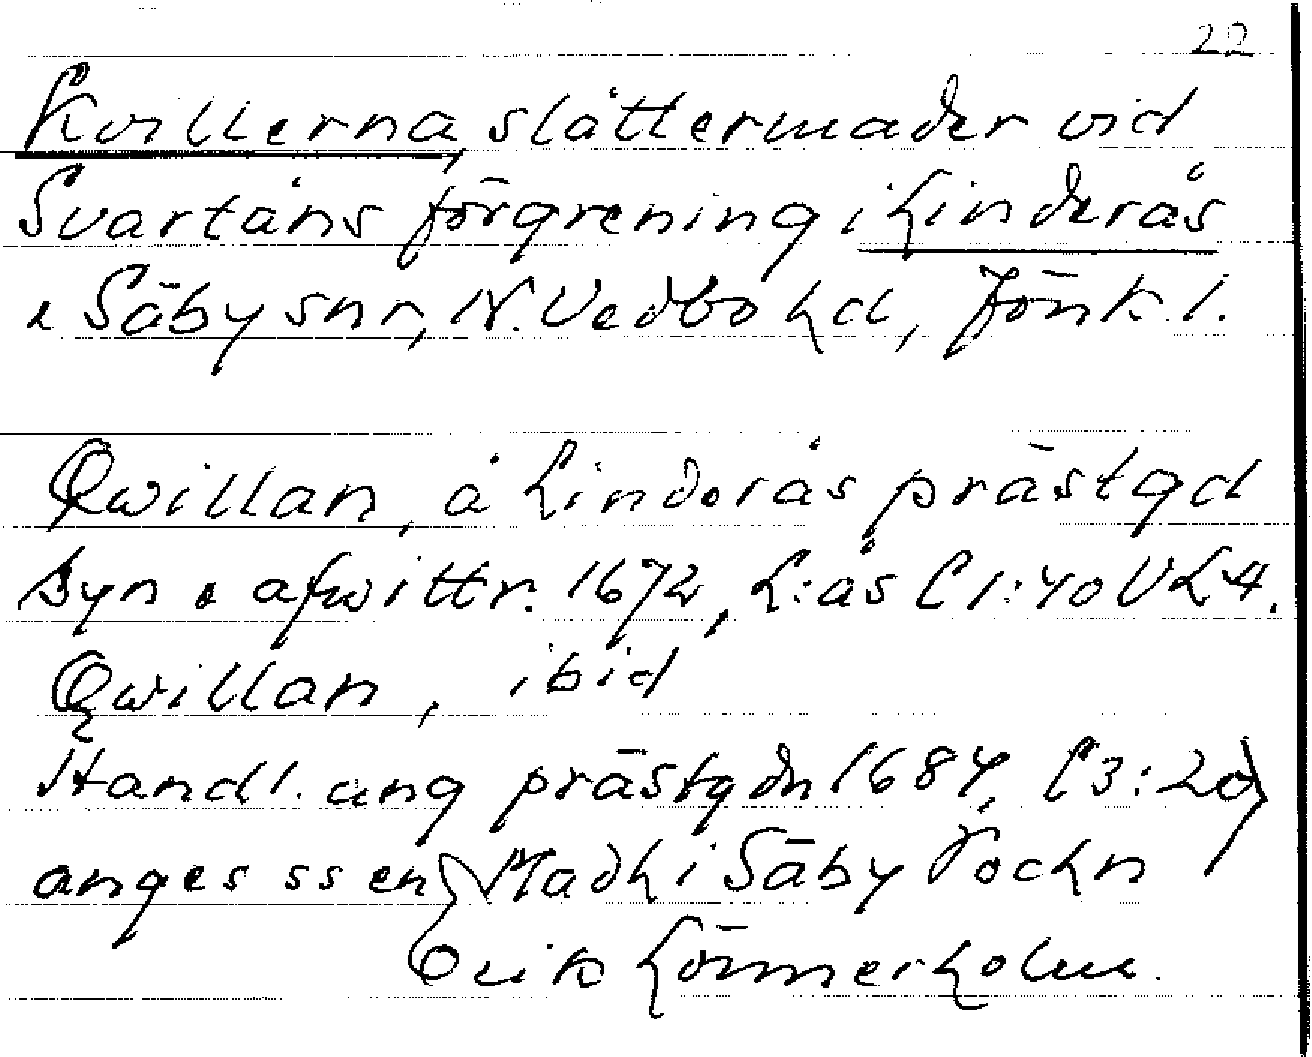 22
Kvillerna, slåttermader vid
Svartåns förgrening i Linderås
& Säby snr, N. Vedbo hd, Jönk. l.
Qwillan, å Linderås prästgd
Syn & afwittr. 1672, L:ås C1:40 VLA.
Qwillan, ibid
Handl. ang prästgdn 1684, C3:20,
anges ss en Madh i Säby Sochn
Erik Lönnerholm.